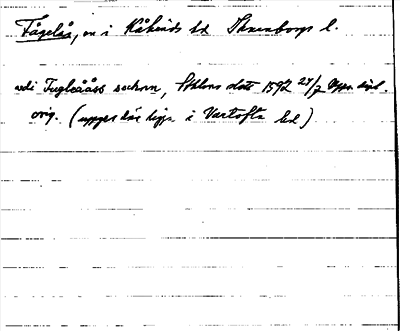 Fågelås, sn i Kåkinds hd Skaraborgs l.
udi Fugleååss socknn, Sthlms slott 1592 27/7 Oppn. dipl.
orig. (uppges här ligga i Vartofta hd)